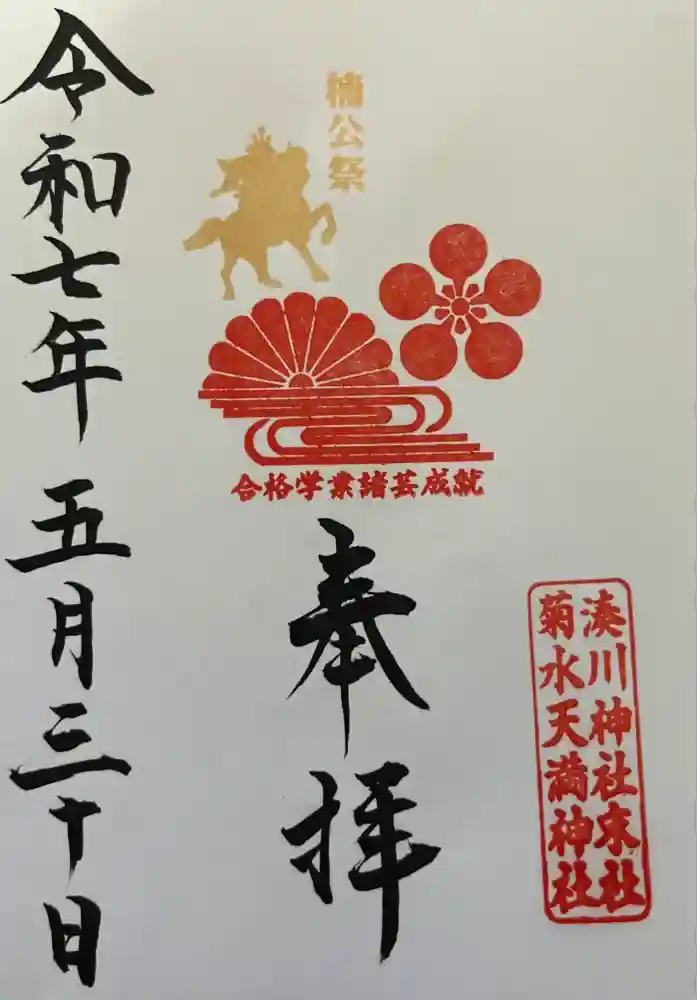 湊川神社末社
菊水天満神社
楠公祭
合格学業諸芸成就
奉拝
令和七年五月三十日